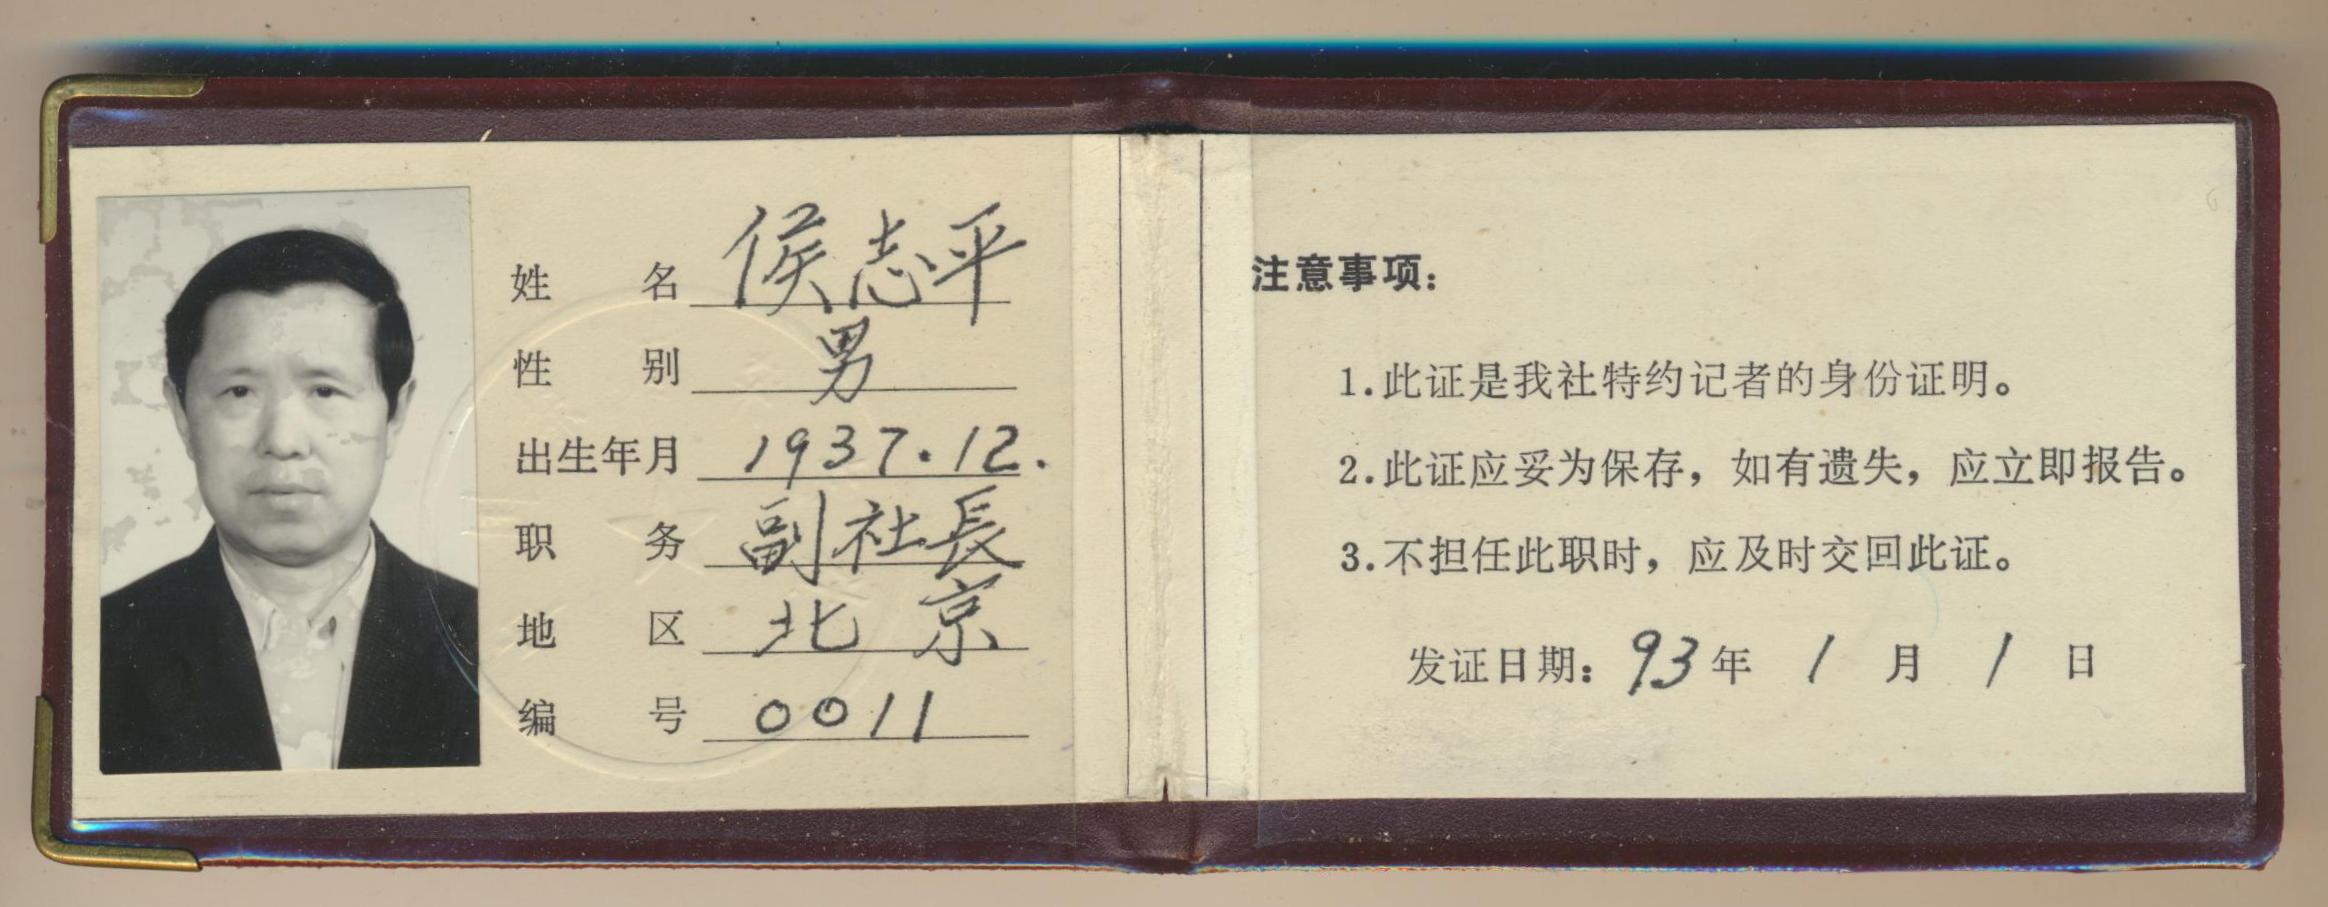 姓名 侯志平
性别 男
出生年月 1937.12.
职务 副社長
地区 北京
编号 0011
注意事项：
1.此证是我社特约记者的身份证明。
2.此证应妥为保存，如有遗失，应立即报告。
3.不担任此职时，应及时交回此证。
发证日期：93年1月1日